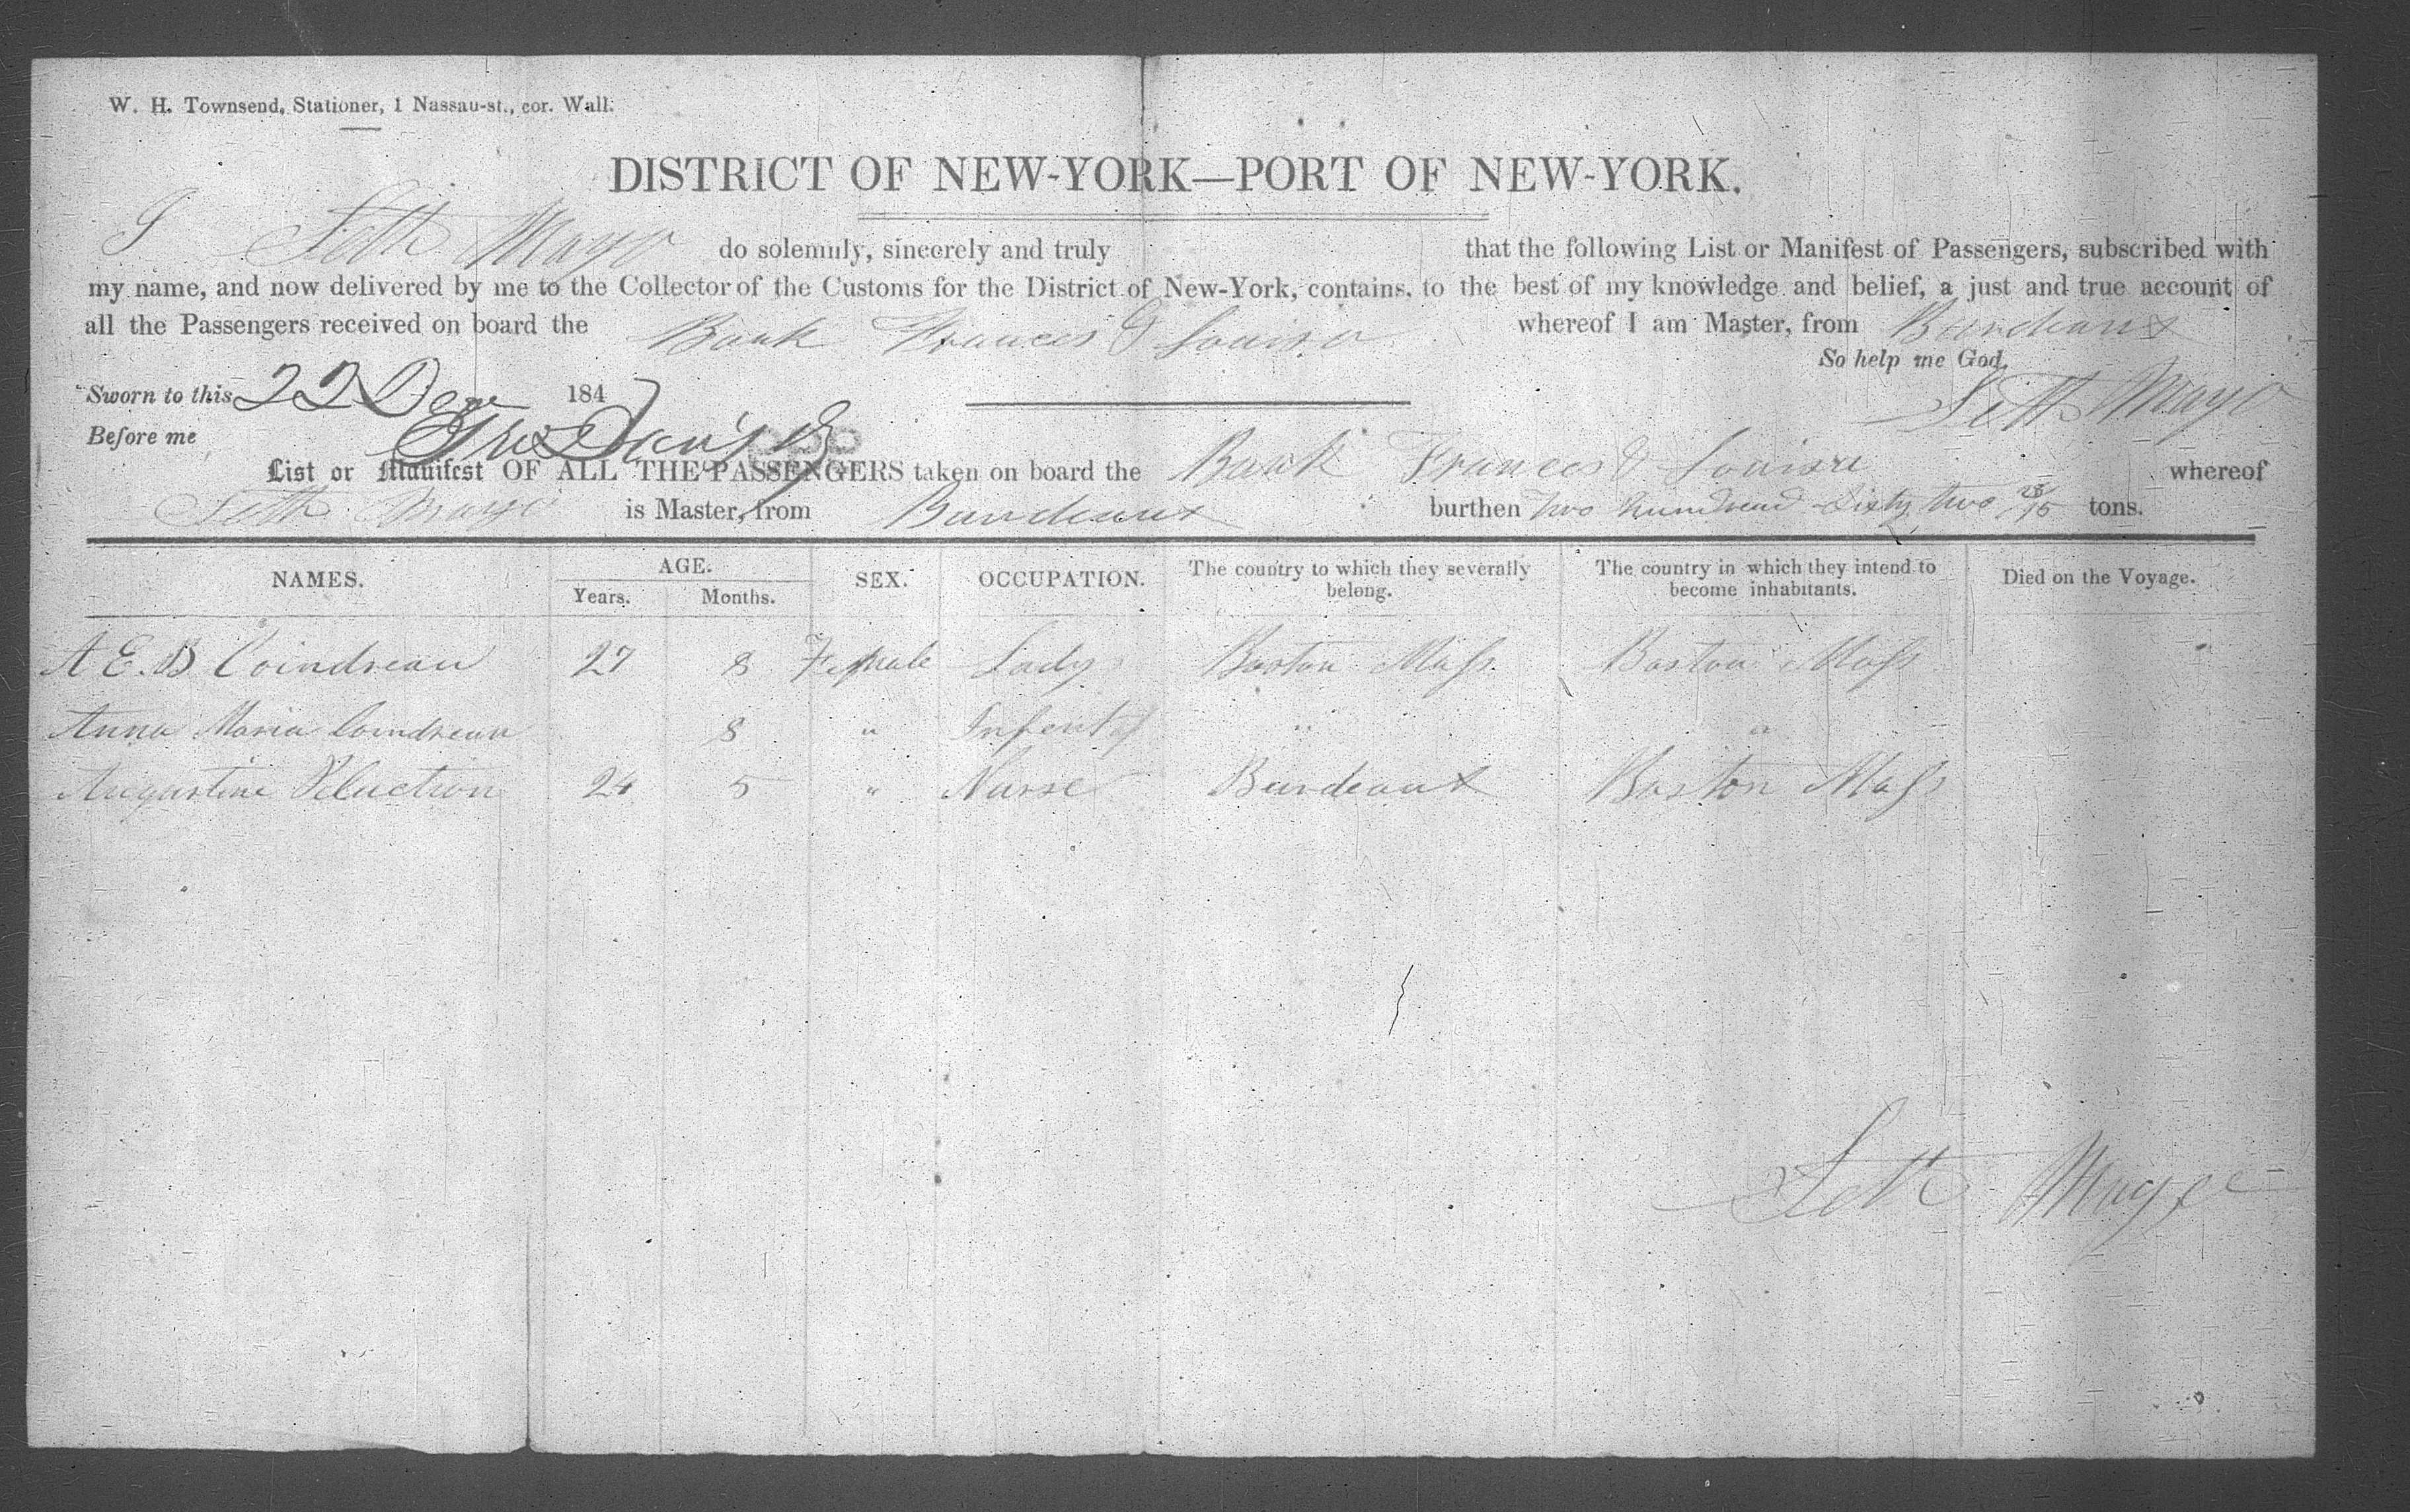 W. H. Townsend, Stationer, 1 Nassau-st., cor. Wall.
DISTRICT OF NEW-YORK—PORT OF NEW-YORK.
I Seth Mayo do solemnly, sincerely and truly that the following List or Manifest of Passengers, subscribed with
my name, and now delivered by me to the Collector of the Customs for the District of New-York, contains, to the best of my knowledge and belief, a just and true account of
all the Passengers received on board the Bark Frances & Louisa whereof I am Master, from Burdeaux
So help me God.
Sworn to this 22 Dec 1847 Seth Mayo
Before me
List or Manifest OF ALL THE PASSENGERS taken on board the Bark Frances & Louisa whereof
Seth Mayo is Master, from Burdeaux burthen Two hundred Sixty two tons.
NAMES. AGE. SEX. OCCUPATION. The country to which they severally belong. The country in which they intend to become inhabitants. Died on the Voyage.
Years. Months.
A E. B Coindreau 27 8 Female Lady Boston Mass Boston Mass
Anna Maria Coindreau 8 " Infent " "
Augustine 24 5 " Nurse Burdeaux Boston Mass
Seth Mayo